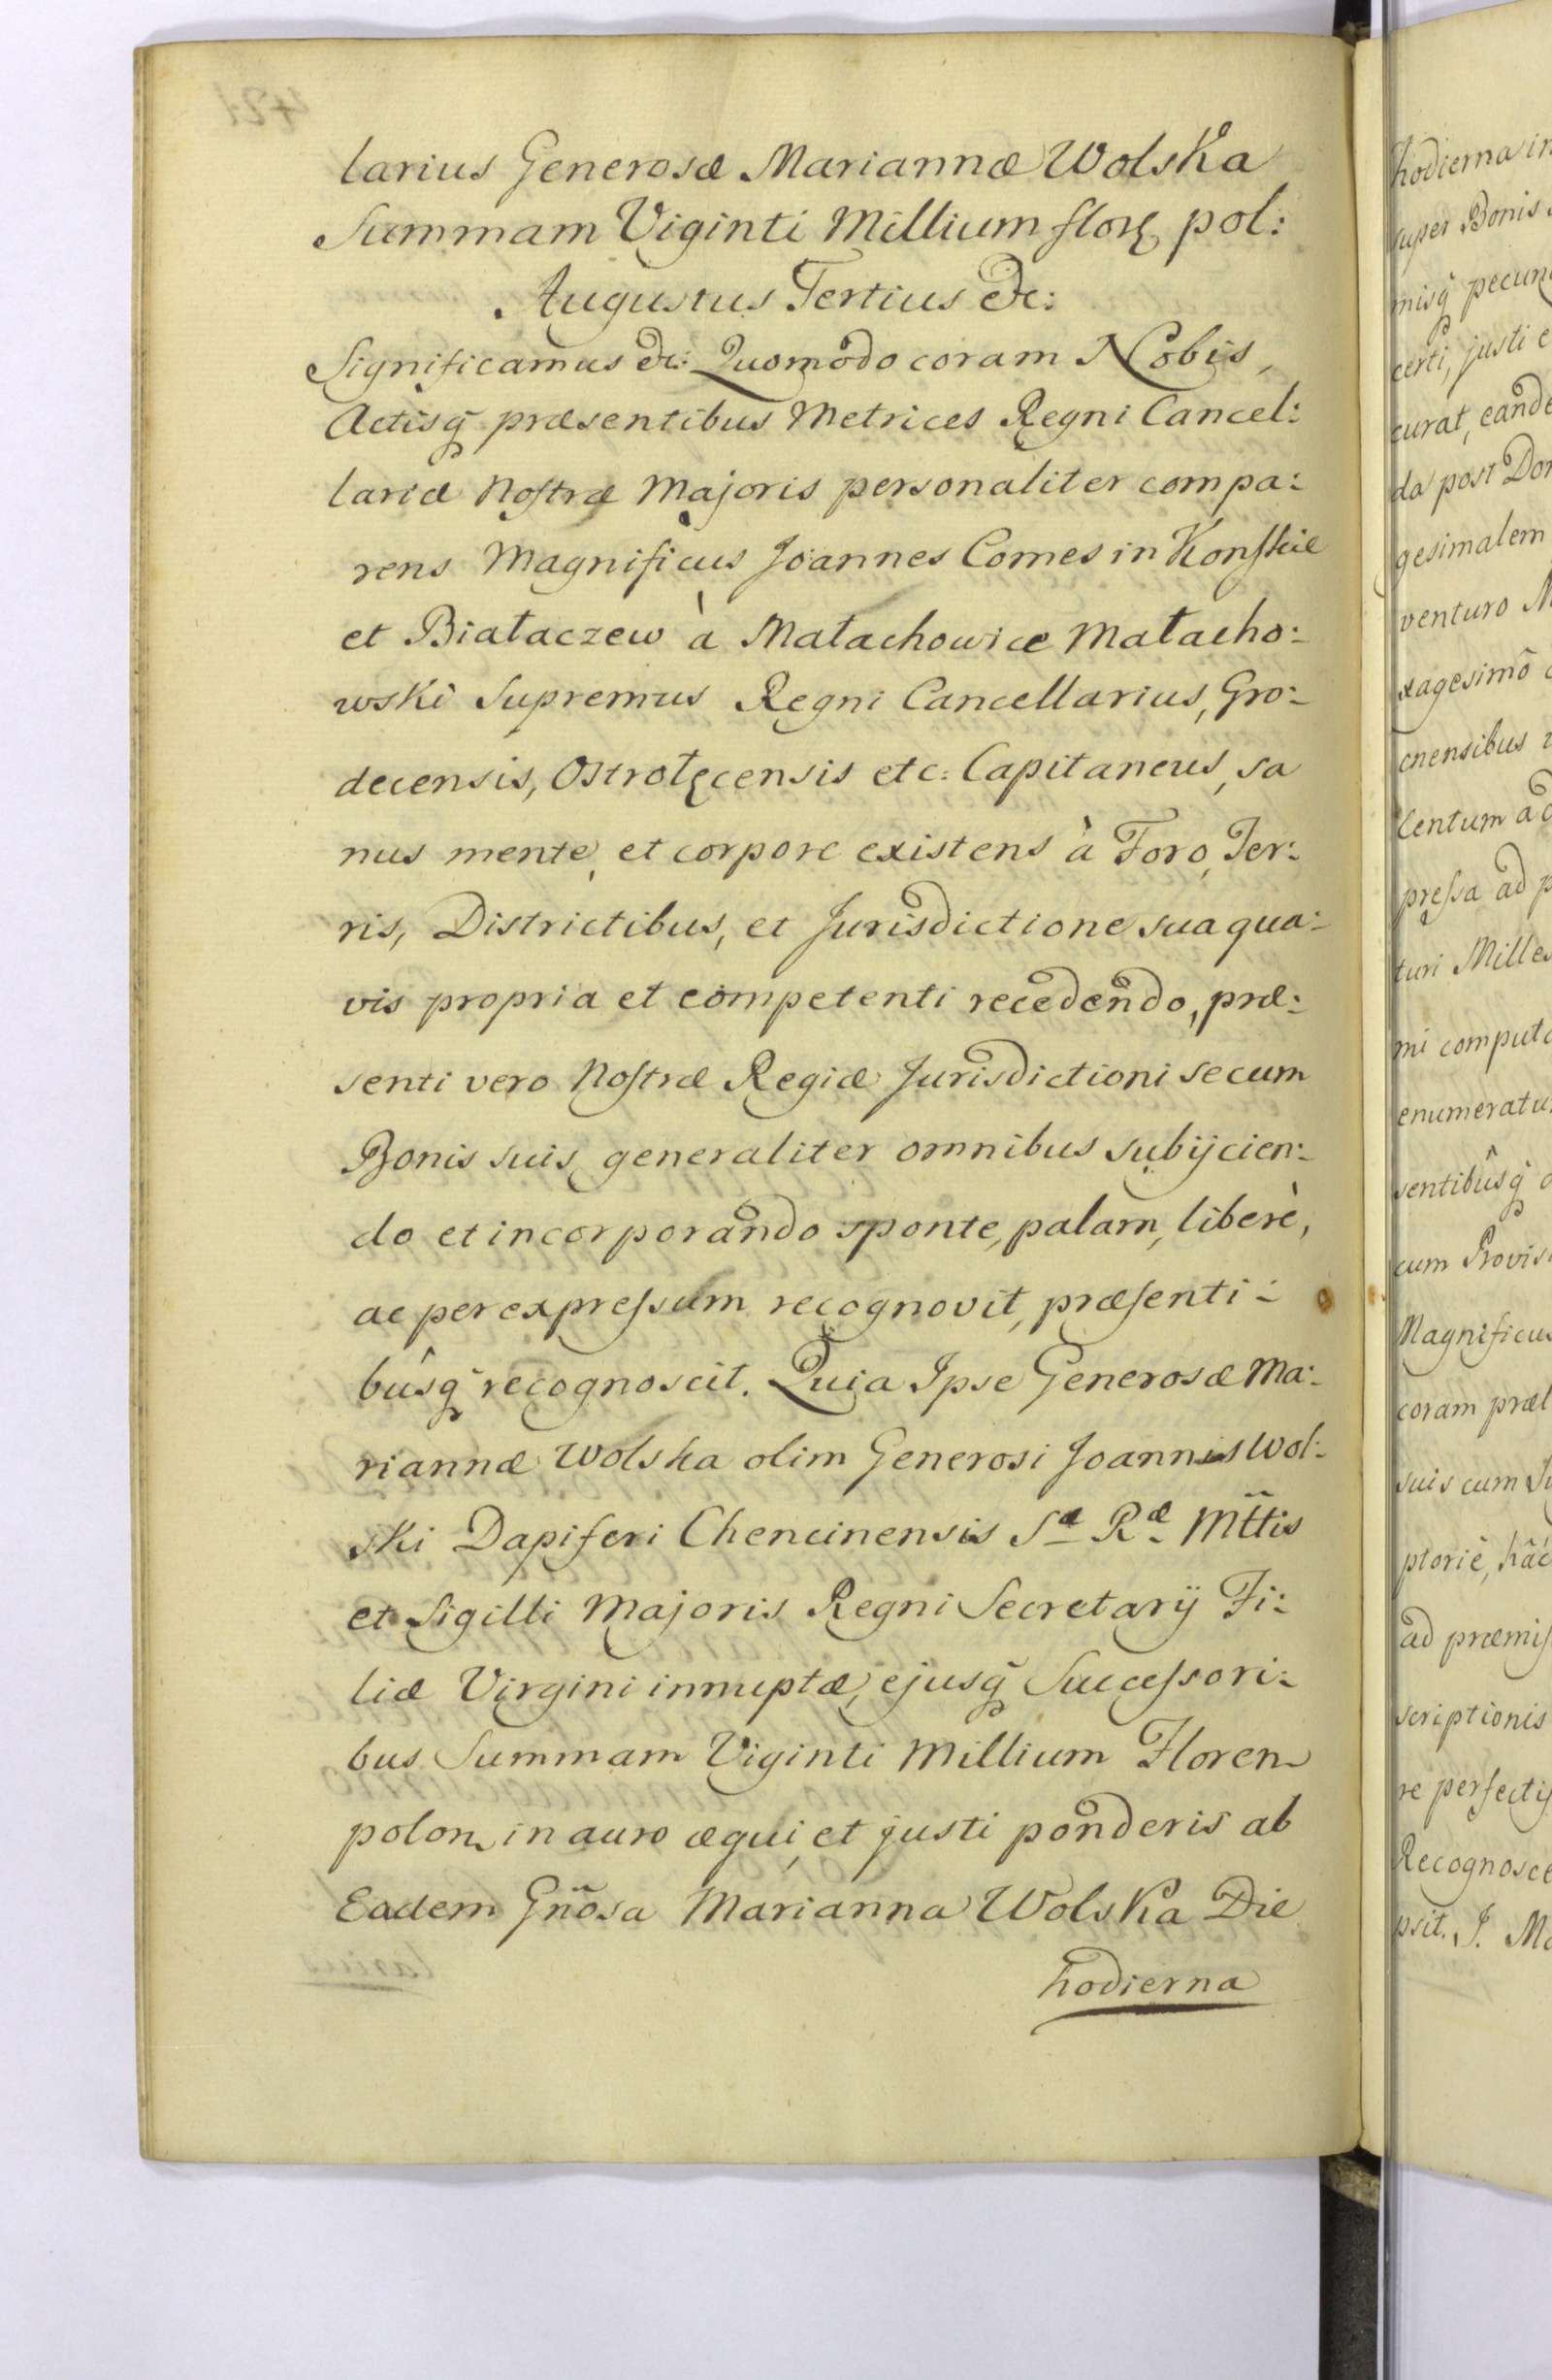 larius Generosæ Mariannæ Wolska
Summam Viginti Millium flor pol:
Augustus Tertius &c:
Significamus &c: Quomodo coram Nobis,
Actisq̃ præsentibus Metrices Regni Cancel:
lariæ Nostræ Majoris personaliter compa:
rens Magnificus Joannes Comes in Konskie
et Białaczew à Małachowice Małacho:
wski Supremus Regni Cancellarius, Gro:
decensis, Ostrołęcensis etc: Capitaneus, sa
nus mente, et corpore existens à Foro, Ter:
ris, Districtibus, et Jurisdictione sua qua:
vis propria et competenti recedendo, præ:
senti vero Nostræ Regiæ Jurisdictioni se cum
Bonis suis generaliter omnibus subijcien:
do et incorporando sponte, palam, liberè,
ac per expressum recognovit, præsenti:
bûsq̃ recognoscit. Quia Ipse Generosæ Ma:
riannæ Wolska olim Generosi Joannis Wol:
ski Dapiferi Chencinensis Sæ Ræ Mttis
et Sigilli Majoris Regni Secretarij Fi:
liæ Virgini innuptæ, ejusq̃ Successori:
bus Summam Viginti Millium Floren
polon in auro æqui, et justi ponderis ab
Eadem Gñosa Marianna Wolska Die
hodierna
hodierna in
super Bonis
misq̃ pecun
certi, justi e
curat, eande
da post Dom
gesimalem
venturo
xagesimô
cnensibus
Centum ad
pressa ad p
turi Mille
mi computa
enumeratu
sentibûsq̃
cum Provis
Magnificus
coram præ
suis cum
ptoriè, hâc
ad præmis
scriptionis
re perfectis
Recognosce
psit. J. Ma